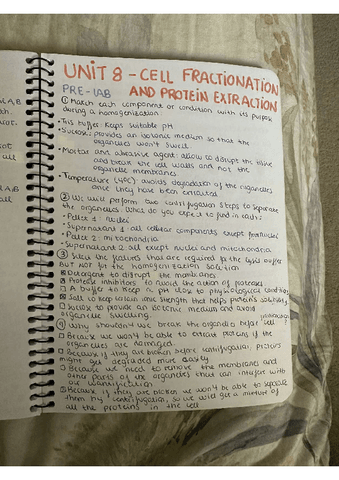 UNIT 8 - CELL FRACTIONATION
PRE-LAB AND PROTEIN EXTRACTION
① Match each component or condition with its purpose
during a homogenization:
• Tris buffer: Keeps suitable pH
• Sucrose: provides an isotonic medium so that the
organelles won't swell
• Mortar and abrasive agent: allow to disrupt the tissue
and break the cell walls and not the
organelle membranes.
• Temperature (4ºC) avoids degradation of the organelles
once they have been extracted
② We will perform two centrifugation steps to separate
the organelles. What do you expect to find in each:
• Pellet 1: nuclei
• Supernatant 1: all cellular components except from nuclei
• Pellet 2: mitochondria
• Supernatant 2: all except nuclei and mitochondria
③ Select the features that are required for the lysis buffer
but not for the homogenization solution
☒ Detergent to disrupt the membranes
☒ Protease inhibitors to avoid the action of proteases
☐ A buffer to keep a pH close to physiological conditions
☒ Salt to keep certain ionic strength that helps proteins solubility
☐ Sucrose to provide an isotonic medium and avoid
organelle swelling.
④ Why shouldn't we break the organelles before ?
☐ Because we won't be able to extract proteins if the
organelles are damaged
☐ Because if they are broken before centrifugation, proteins
might get degraded more easily
☐ Because we need to remove the membranes and
other parts of the organelles that can interfere with
our
☒ Because if they are broken we won't be able to separate
them by centrifugation, so we will get a mixture of
all the proteins in the cell
all